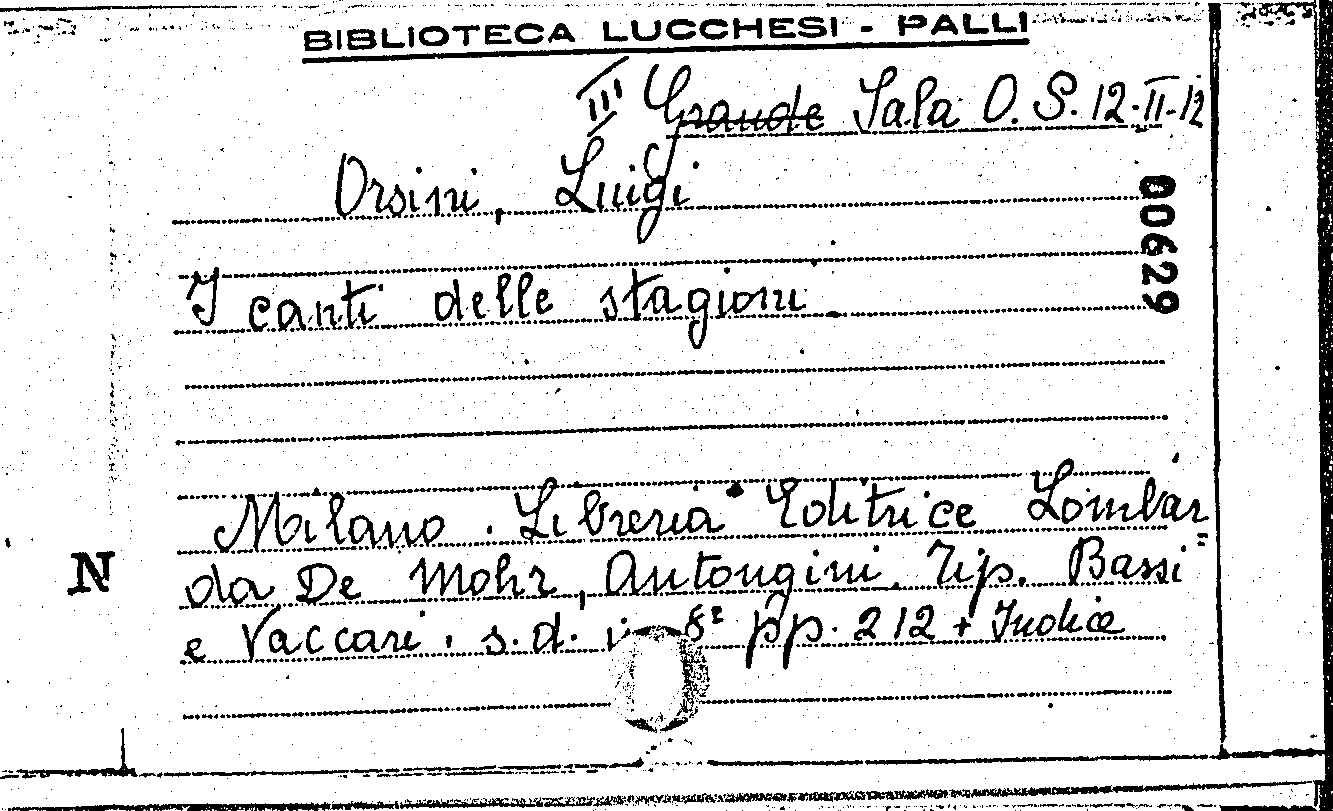 BIBLIOTECA LUCCHESI - PALLI
III Grande Sala O. S. 12-II-12
Orsini, Luigi
00629
I canti delle stagioni
Milano. Libreria Editrice Lombar
N
da De Mohr, Antongini. Tip. Bassi
e Vaccari. s.d. in 8º pp. 212 + Indice